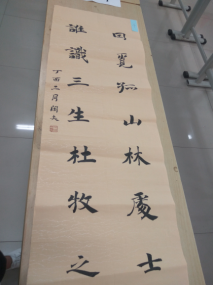 回覓孤山林處士
誰識三生杜牧之
丁酉三月